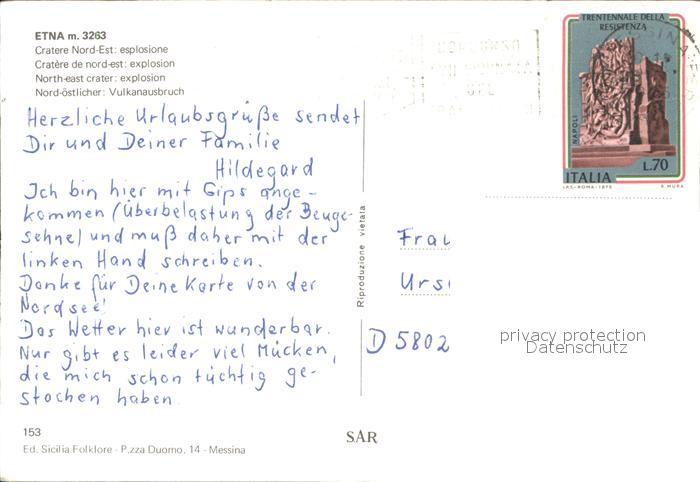 ETNA m. 3263
Cratere Nord-Est: esplosione
Cratère de nord-est: explosion
North-east crater: explosion
Nord-östlicher: Vulkanausbruch
Herzliche Urlaubsgrüße sendet
Dir und Deiner Familie
Hildegard
Ich bin hier mit Gips ange-
kommen (Überbelastung der Beuge-
sehne) und muß daher mit der
linken Hand schreiben.
Danke für Deine Karte von der
Nordsee!
Das Wetter hier ist wunderbar.
Nur gibt es leider viel Mücken,
die mich schon tüchtig ge-
stochen haben.
153
Ed. Sicilia Folklore - P.zza Duomo, 14 - Messina
Riproduzione vietata
SAR
TRENTENNALE DELLA
RESISTENZA
NAPOLI
L.70
ITALIA
I.P.S.-ROMA-1975
E. MURA
Frau
Ursi
D 5802
privacy protection
Datenschutz